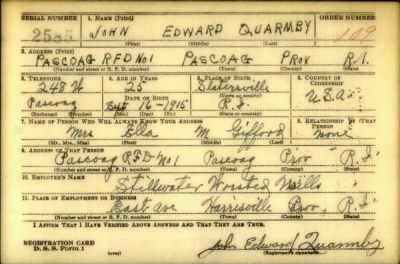 SERIAL NUMBER 1. NAME (Print) ORDER NUMBER
2585 JOHN EDWARD QUARMBY 109
(First) (Middle) (Last)
2. ADDRESS (Print)
PASCOAG RFD NO1 PASCOAG PROV R.I.
(Number and street or R. F. D. number) (Town) (County) (State)
3. TELEPHONE 4. AGE IN YEARS 5. PLACE OF BIRTH 6. COUNTRY OF CITIZENSHIP
248 W 25 Slatersville U.S.A.
DATE OF BIRTH
Pascoag 16-1915 R.I.
(Exchange) (Number) (Mo.) (Day) (Yr.) (State or country)
7. NAME OF PERSON WHO WILL ALWAYS KNOW YOUR ADDRESS 8. RELATIONSHIP OF THAT PERSON
Mrs Ella M Gifford none
(Mr., Mrs., Miss) (First) (Middle) (Last)
9. ADDRESS OF THAT PERSON
Pascoag R.F.D No 1 Pascoag Prov R.I.
(Number and street or R. F. D. number) (Town) (County) (State)
10. EMPLOYER'S NAME
Stillwater Worsted Mills
11. PLACE OF EMPLOYMENT OR BUSINESS
East Ave Harrisville Prov, R.I.
(Number and street or R. F. D. number) (Town) (County) (State)
I AFFIRM THAT I HAVE VERIFIED ABOVE ANSWERS AND THAT THEY ARE TRUE.
REGISTRATION CARD
D. S. S. Form 1 John Edward Quarmby
(Registrant's signature)